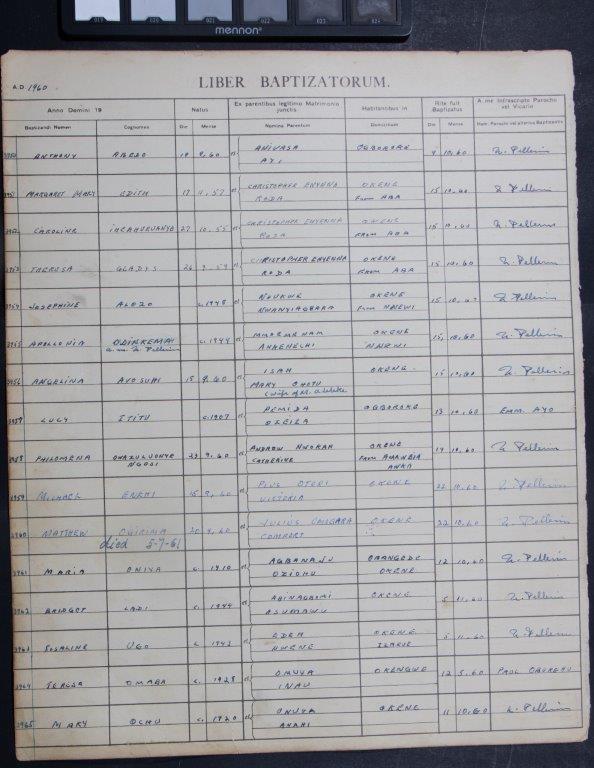 019 020 021 022 023 024
mennon
A.D. 1960
LIBER BAPTIZATORUM.
Anno Domini 19 Natus Ex parentibus legitimo Matrimonio junctis Habitantibus in Rite fuit Baptizatus A me infrascripto Parocho vel Vicario
Baptizandi Nomen Cognomen Die Mense Nomina Parentum Domicilium Die Mense Nom. Parochi vel alterius Baptizantis
ANTHONY 19 9,60 et ANIVASA OGBOROKE 9 10,60 Pellerin
AYI
3951 MARGARET MARY EDITH 17 57 et CHRISTOPHER ENYENNA OKENE 15 10,60 Pellerin
RODA From ABA
3952 CAROLINE 27 10,55 et CHRISTOPHER ENYENNA OKENE 15 Pellerin
ROZA FROM ABA
3953 THERESA GLADYS 26 59 et CHRISTOPHER ENYENNA OKENE 15 10,60 Pellerin
RODA FROM ABA
3954 JOSEPHINE ALOZO c,1948 et OKENE 15 Pellerin
From NNEWI
3955 APOLLONIA c,1944 et OKENE 15, 10,60 Pellerin
Pellerin
3956 ANGELINA 15 9,60 et ISAH OKENE 15 10,60 Pellerin
MARY
(wife of M.
3957 LUCY ITITU c.1907 et PEMIDA OGBOROKE 13 10,60 EMM. AYO
OZEIZA
3958 PHILOMENA 23 9,60 et ANDREW OKENE 19 10,60 Pellerin
NGOSI CATHERINE FROM
3959 MICHAEL ENEHI 15 9,60 et PIUS OTORI OKENE 22 10,60 Pellerin
VICTORIA
3960 MATTHEW OHIRIMA 20 9,60 et JULIUS OKENE 22 10,60 Pellerin
died 5-7-61 COMFORT
3961 MARIA ONIYA c. 1910 et AGBANAJU OBANGEDE 12 10,60 Pellerin
OZIOHU OKENE
3962 BRIDGET LADI c. 1944 et OKENE 5 11,60 Pellerin
ASUMAWU
3963 ROSALINE UGO c 1943 et EDEH OKENE 5 11,60 Pellerin
3964 TERESA OMABA c. 1928 et OMUYA OKENGWE 12 5,60 PAUL
INAU
3965 MARY OCHU c. 1920 et ONUYA OKENE 11 10,60 Pellerin
ANAHI